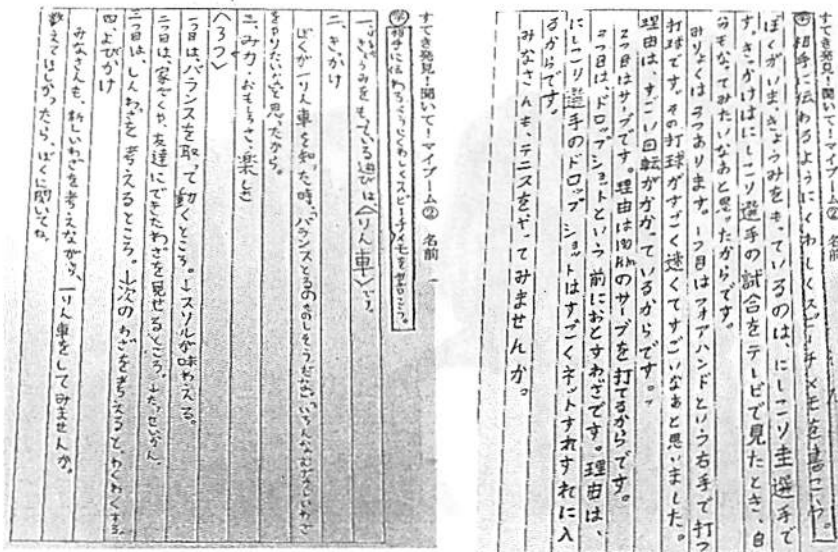 すてき発見!聞いて!マイブーム② 名前
相手に伝わるようにくわしくスピーチメモを書こう。
ぼくがいま、きょうみをもっているのは、にしこり圭選手で
す。きっかけはにしこり選手の試合をテレビで見たとき、自
分もなってみたいなあと思ったからです。
みりょくは3つあります。1つ目はフォアハンドという右手で打つ
打球です。その打球がすごく速くてすごいなあと思いました。
理由は、すごい回転がかかっているからです。
2つ目はサーブです。理由は のサーブを打てるからです。
3つ目は、ドロップショットという前におとすわざです。理由は、
にしこり選手のドロップショットはすごくネットすれすれに入
るからです。
みなさんも、テニスをやってみませんか。
すてき発見!聞いて!マイブーム② 名前
相手に伝わるようにくわしくスピーチメモを書こう。
一、きょうみをもっている遊びは〈一りん車〉です。
二、きっかけ
ぼくが一りん車を知った時、「バランスとるのたのしそうだな。いろんなむずかしいわざ
をやりたいな」と思ったから。
三、みカ・おもしろさ・楽しさ
〈3つ〉
一つ目は、バランスを取って動くところ。→スリルが味わえる。
二つ目は、家ぞくや、友達にできたわざを見せるところ。→たっせいかん
三つ目は、しんわざを考えるところ。→次のわざを考えると、わくわくする。
四、よびかけ
みなさんも、新しいわざを考えながら、一りん車をしてみませんか。
教えてほしかったら、ぼくに聞いてね。